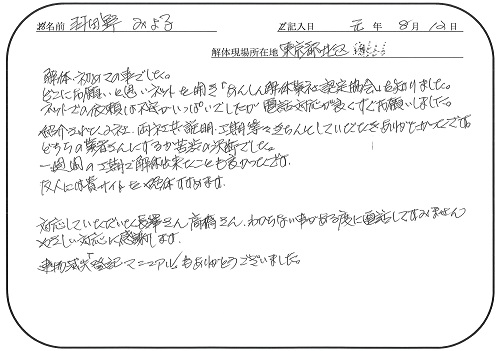 お名前 羽田野 みよ子 ご記入日 元年8月12日
解体現場所在地 東京都北区
解体初めての事でした。
どこにお願いと思いネットを開き「あんしん解体業社認定協会」を知りました。
ネットでの依頼は不安がいっぱいでしたが電話対応が良くすぐお願いしました。
紹介された2社、両社共説明、工期等々きちんとしていただきありがたかったです
どちらの業者さんにするか苦労の決断でした。
一週間の工期で解体出来たことも良かったです。
友人には貴サイトを すすめます。
対応していただいた長澤さん、高橋さん、わからない事がある度に電話してすみません
やさしい対応に感謝します。
「建物滅失登記マニュアル」もありがとうございました。